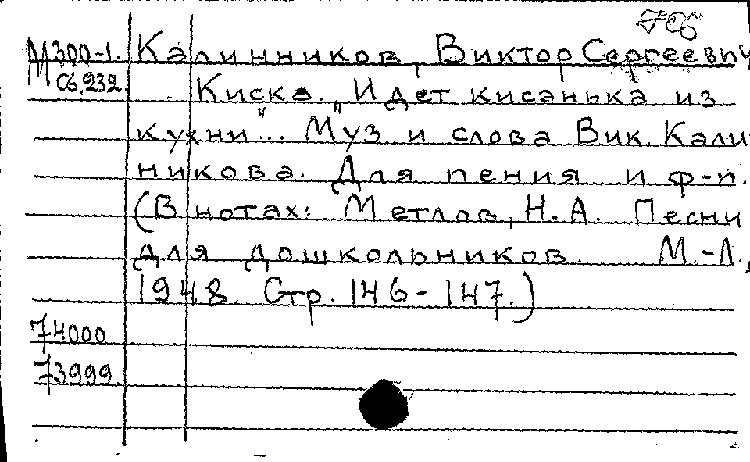 М300-1. Калинников, Виктор Сергеевич
М Сб.232. Киска. „Идет кисанька из
кухни"... Муз. и слова Вик. Кали
никова. Для пения и ф-п.
(В нотах: Метлов, Н.А. Песни
для дошкольников. М.-Л.,
1948. Стр. 146-147.)
74000
73999.